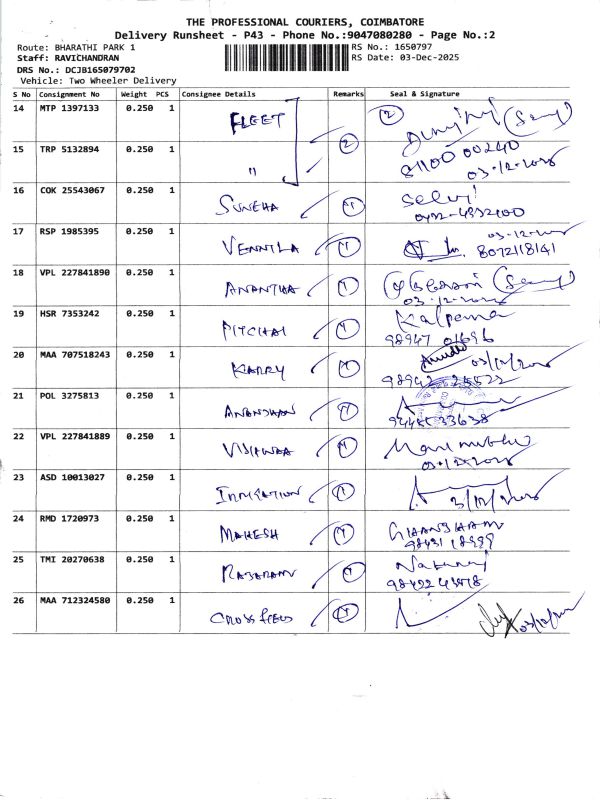 THE PROFESSIONAL COURIERS, COIMBATORE
Delivery Runsheet - P43 - Phone No.:9047080280 - Page No.:2
Route: BHARATHI PARK 1
RS No.: 1650797
Staff: RAVICHANDRAN
RS Date: 03-Dec-2025
DRS No.: DCJB165079702
Vehicle: Two Wheeler Delivery
S No Consignment No Weight PCS Consignee Details Remarks Seal & Signature
14 MTP 1397133 0.250 1 FLEET 2
15 TRP 5132894 0.250 1 " 2 81100 00240
03-12-2025
16 COK 25543067 0.250 1 SUNEHA 1 Selvi
0422-4332400
17 RSP 1985395 0.250 1 VENNILA 1 03-12-2025
8072118141
18 VPL 227841890 0.250 1 ANANTHA 1
03-12-2025
19 HSR 7353242 0.250 1 PITCHAI 1 Kalpana
98947 01696
20 MAA 707518243 0.250 1 KARRY 1 03/12/2025
98942 25522
21 POL 3275813 0.250 1 ANANDHAN 1
94455 33638
22 VPL 227841889 0.250 1 VISHWAA 1 Marimuthu
03-12-2025
23 ASD 10013027 0.250 1 1
3/12/2025
24 RMD 1720973 0.250 1 MAHESH 1 GHANSHAM
98431 18999
25 TMI 20270638 0.250 1 RAJARAM 1 Nataraj
98422 43518
26 MAA 712324580 0.250 1 CROSSFIELD 1
03/12/2025